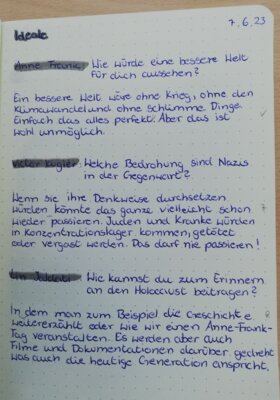 7.6.23
Ideale
Anne Frank: Wie würde eine bessere Welt
für dich aussehen?
Ein bessere Welt wäre ohne Krieg, ohne den
Klimawandel und ohne schlimme Dinge.
Einfach das alles perfekt. Aber das ist
wohl unmöglich.
Victor Kugler: Welche Bedrohung sind Nazis
in der Gegenwart?
Wenn sie ihre Denkweise durchsetzen
würden könnte das ganze vielleicht schon
wieder passieren. Juden und Kranke würden
in Konzentrationslager kommen, getötet
oder vergast werden. Das darf nie passieren!
Wie kannst du zum Erinnern
an den Holocaust beitragen?
In dem man zum Beispiel die Geschichte
weitererzählt oder wie wir einen Anne-Frank-
Tag veranstalten. Es werden aber auch
Filme und Dokumentationen darüber gedreht
was auch die heutige Generation anspricht.